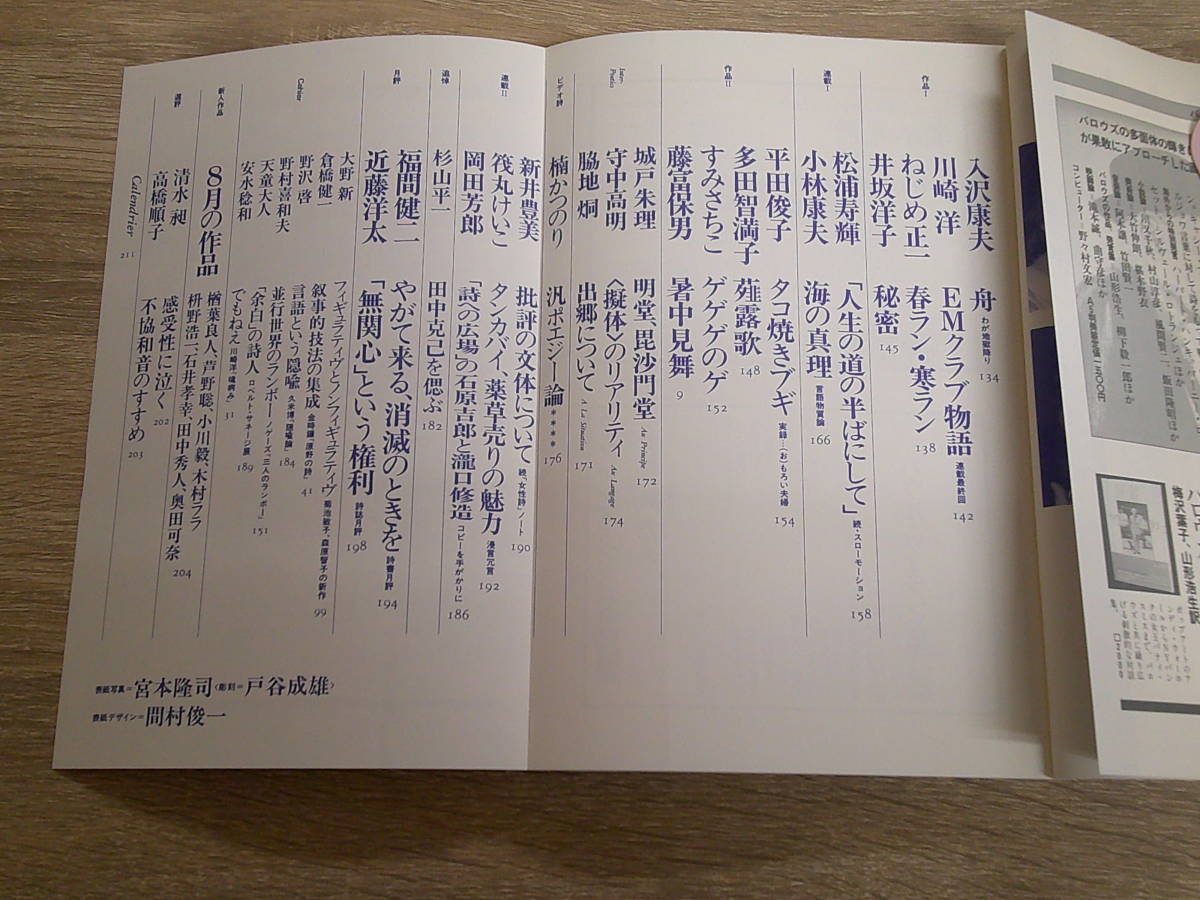 作品I
入沢康夫 舟 わが地獄降り 134
川崎 洋 EMクラブ物語 連載最終回 142
ねじめ正一 春ラン・寒ラン 138
井坂洋子 秘密 145
連載I
松浦寿輝 「人生の道の半ばにして」 続・スローモーション 158
小林康夫 海の真理 言語物質論 166
作品II
平田俊子 タコ焼きブギ 実録…(お)もろい夫婦 154
多田智満子 薤露歌 148
すみさちこ ゲゲゲのゲ 152
藤富保男 暑中見舞 9
Inter-Poetics
城戸朱理 明堂、毘沙門堂 Au Principe 172
守中高明 〈擬体〉のリアリティ Au Langage 174
脇地 炯 出郷について A La Situation 171
ビデオ詩
楠かつのり 汎ポエジー論**** 176
連載II
新井豊美 批評の文体について 続・「女性詩」ノート 190
筏丸けいこ タンカバイ、薬草売りの魅力 漫言冗言 192
岡田芳郎 「詩〈の広場」の石原吉郎と瀧口修造 コピーを手がかりに 186
追悼
杉山平一 田中克己を偲ぶ 182
月評
福間健二 やがて来る、消滅のときを 詩書月評 194
近藤洋太 「無関心」という権利 詩誌月評 198
Cahier
大野 新 フィギュラティヴとノンフィギュラティヴ 菊池敏子、森原智子の新作 99
倉橋健一 叙事的技法の集成 金時鐘『原野の詩』 41
野沢 啓 言語という隠喩 久米博『隠喩論』 184
野村喜和夫 並行世界のランボー ノゲーズ『三人のランボー』 151
天童大人 「余白」の詩人 ロベルト・サネージ展 189
安水稔和 でもねえ 川崎洋『魂病み』 31
新人作品
8月の作品 楢葉良人、芦野聡、小川毅、木村フラ
枡野浩二、石井孝幸、田中秀人、奥田可奈 204
選評
清水 昶 感受性に泣く 202
高橋順子 不協和音のすすめ 203
Calendrier 211
表紙写真=宮本隆司〈彫刻=戸谷成雄〉
表紙デザイン=間村俊一
バロウズの多面体の輝き
が果敢にアプローチした
梅沢葉子、山形浩生訳